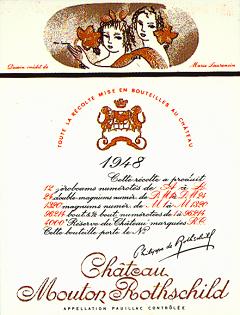 Dessin inédit de Marie Laurencin
TOUTE LA RÉCOLTE MISE EN BOUTEILLES AU CHÂTEAU
1948
Cette récolte a produit
12 jéroboams numérotés de
24 double-magnums numér. de
magnums numér. de M
bout. numérotées de 1 à
"Réserve du Château" marquées R.C.
Cette bouteille porte le No
Philippe de Rothschild
Château
Mouton Rothschild
APPELLATION PAUILLAC CONTRÔLÉE